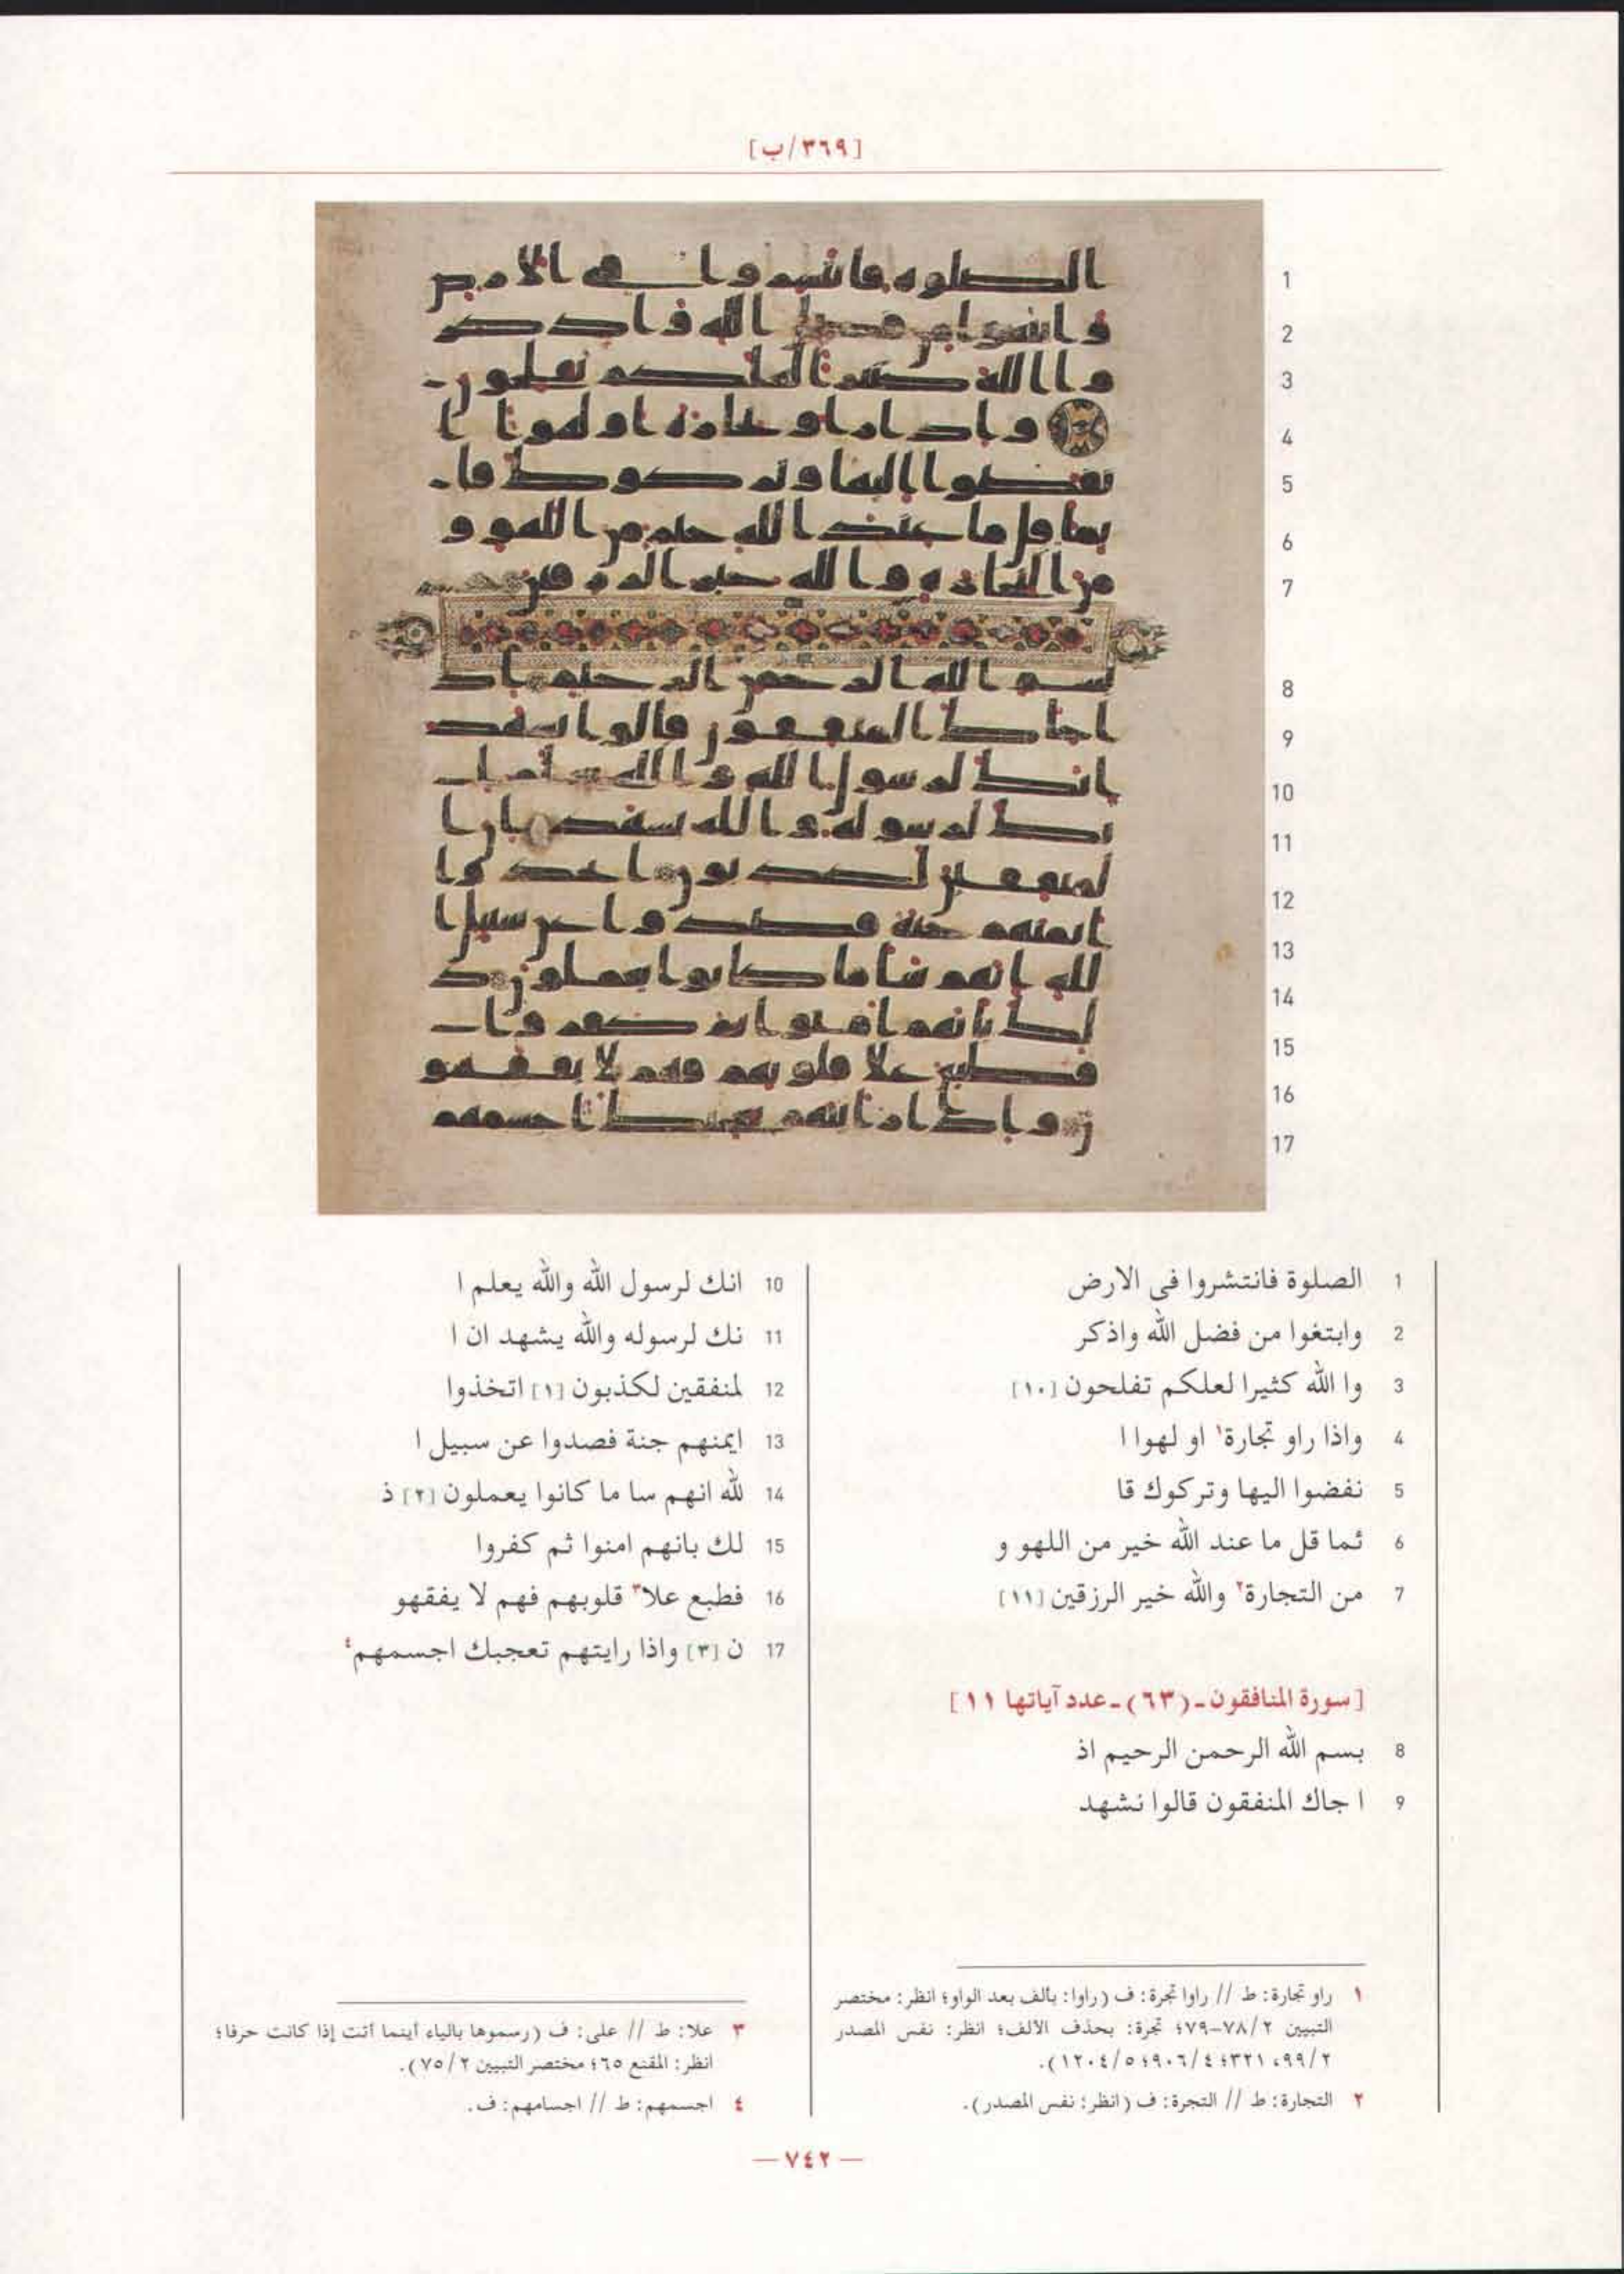 [٣٦٩/ب]
1 الصلوة فانتشروا فى الارض
2 وابتغوا من فضل الله واذكر
3 وا الله كثيرا لعلكم تفلحون [١٠]
4 واذا راو تجارة١ او لهوا ا
5 نفضوا اليها وتركوك قا
6 ئما قل ما عند الله خير من اللهو و
7 من التجارة٢ والله خير الرزقين [١١]
[سورة المنافقون ـ (٦٣) ـ عدد آياتها ١١]
8 بسم الله الرحمن الرحيم اذ
9 ا جاك المنفقون قالوا نشهد
10 انك لرسول الله والله يعلم ا
11 نك لرسوله والله يشهد ان ا
12 لمنفقين لكذبون [١] اتخذوا
13 ايمنهم جنة فصدوا عن سبيل ا
14 لله انهم سا ما كانوا يعملون [٢] ذ
15 لك بانهم امنوا ثم كفروا
16 فطبع علا٣ قلوبهم فهم لا يفقهو
17 ن [٣] واذا رايتهم تعجبك اجسمهم٤
١ راو تجارة: ط // راوا تجرة: ف (راوا: بالف بعد الواو؛ انظر: مختصر
التبيين ٧٨/٢-٧٩؛ تجرة: بحذف الالف؛ انظر: نفس المصدر
٩٩/٢، ٣٢١؛ ٩٠٦/٤؛ ١٢٠٤/٥).
٢ التجارة: ط // التجرة: ف (انظر: نفس المصدر).
٣ علا: ط // على: ف (رسموها بالياء أينما أتت إذا كانت حرفا؛
انظر: المقنع ٦٥؛ مختصر التبيين ٧٥/٢).
٤ اجسمهم: ط // اجسامهم: ف.
— ٧٤٢ —